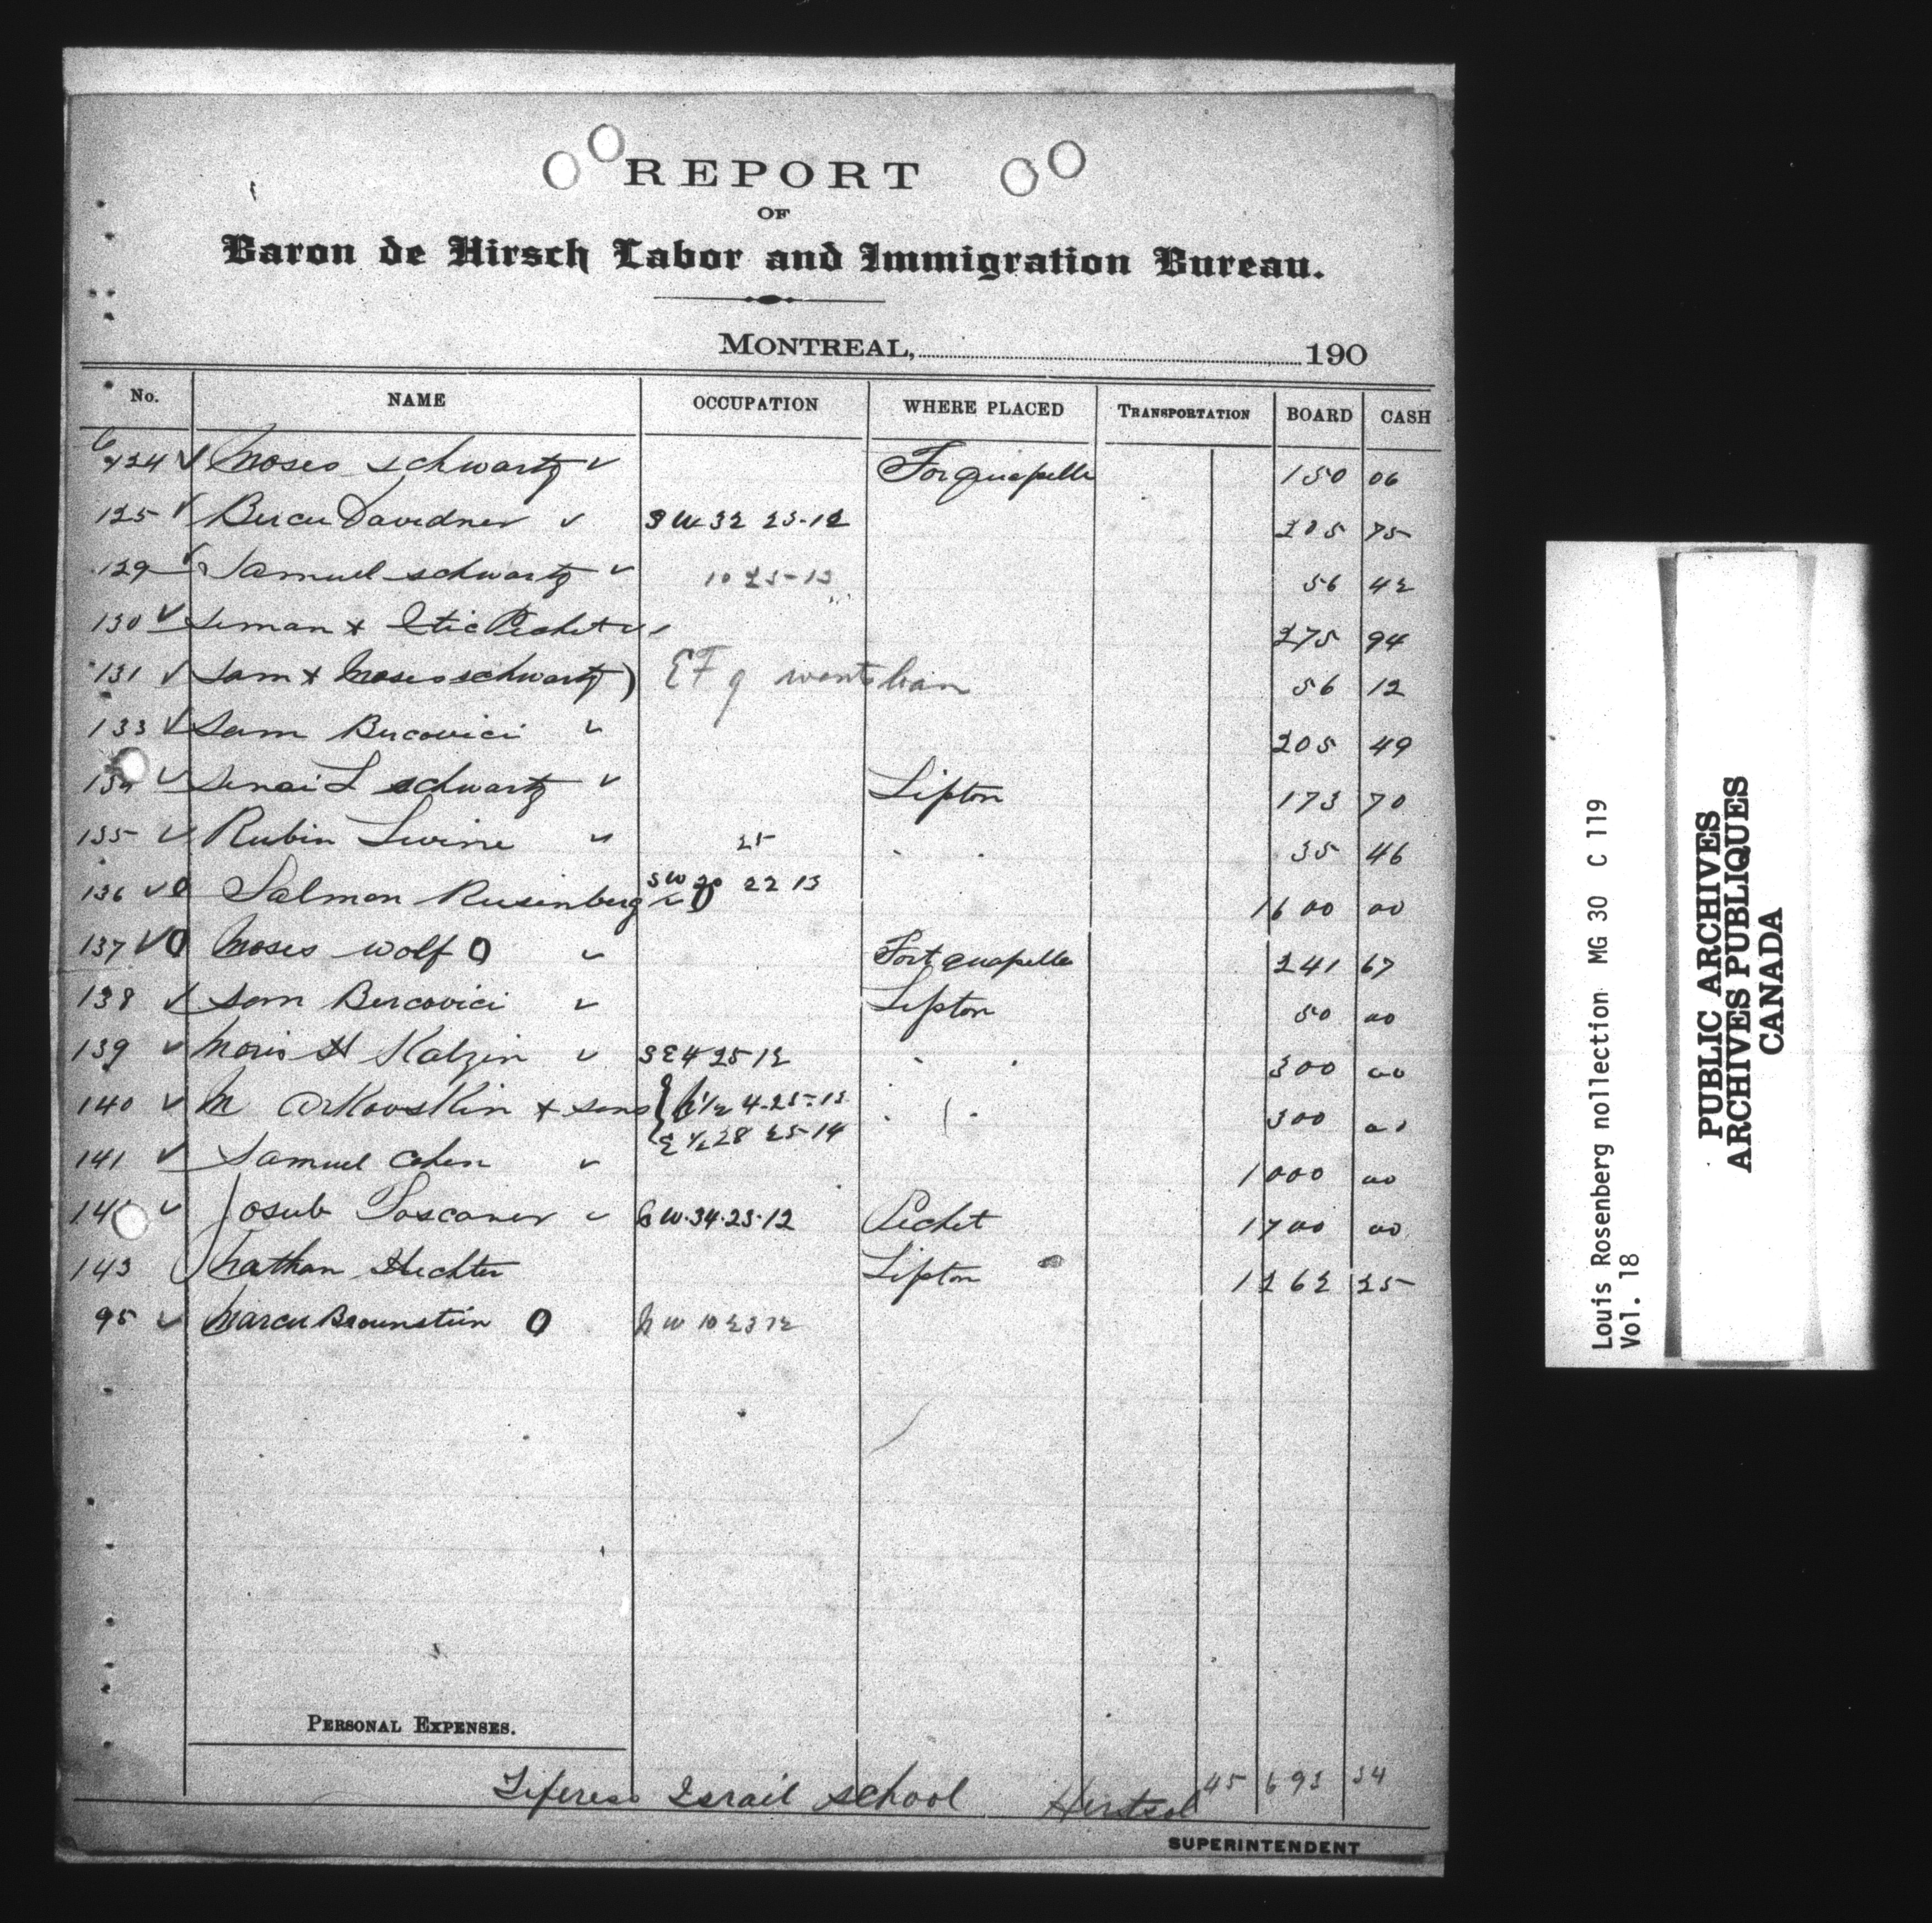 REPORT
OF
Baron de Hirsch Labor and Immigration Bureau.
MONTREAL, 190
No. NAME OCCUPATION WHERE PLACED TRANSPORTATION BOARD CASH
124 Moses Schwartz Fort Quapelle 150 06
125 Bercu Davidner SW 32 23-12 205 75
129 Samuel Schwartz 10 23-13 56 42
130 Seman + Itic Pechet 275 94
131 Sam + Moses Schwartz) wants loan 56 12
133 Sam Bercovici 205 49
134 L Schwartz Lipton 173 70
135 Rubin 25 35 46
136 O Salmon Rusenberg O SW 20 22 13 1600 00
137 O Moses Wolf O Fort Quapelle 241 67
138 Sam Bercovici Lipton 50 00
139 Moris H Katzin SE 4 25 12 300 00
140 M Arkovskin + sons { N 1/2 4-25-13 300 00
E 1/2 28 25-14
141 Samuel Cohen 1000 00
Josub W 34-23-12 Pechet 1700 00
143 Nathan Hechter Lipton 1262 25
95 Marcu Braunstein O NW 10 23 12
PERSONAL EXPENSES.
Tiferess Israil School 45 693 34
SUPERINTENDENT
Louis Rosenberg nollection MG 30 C 119
Vol. 18
PUBLIC ARCHIVES
ARCHIVES PUBLIQUES
CANADA